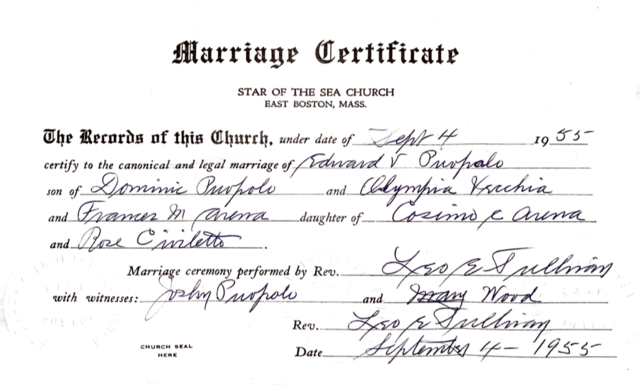 Marriage Certificate
STAR OF THE SEA CHURCH
EAST BOSTON, MASS.
The Records of this Church, under date of Sept 4 1955
certify to the canonical and legal marriage of Edward V Puopolo
son of Dominic Puopolo and Olympia Vecchia
and Frances M Arena daughter of Cosimo C Arena
and Rose Civiletto.
Marriage ceremony performed by Rev. Leo E Sullivan
with witnesses: Puopolo and Mary Wood
Rev. Leo E Sullivan
CHURCH SEAL
HERE
Date September 4 - 1955